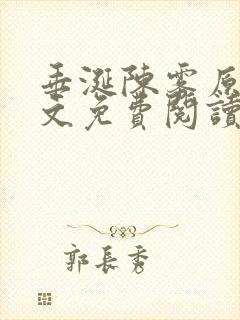 垂涎陳雾原
文免費閱讀
郭長秀